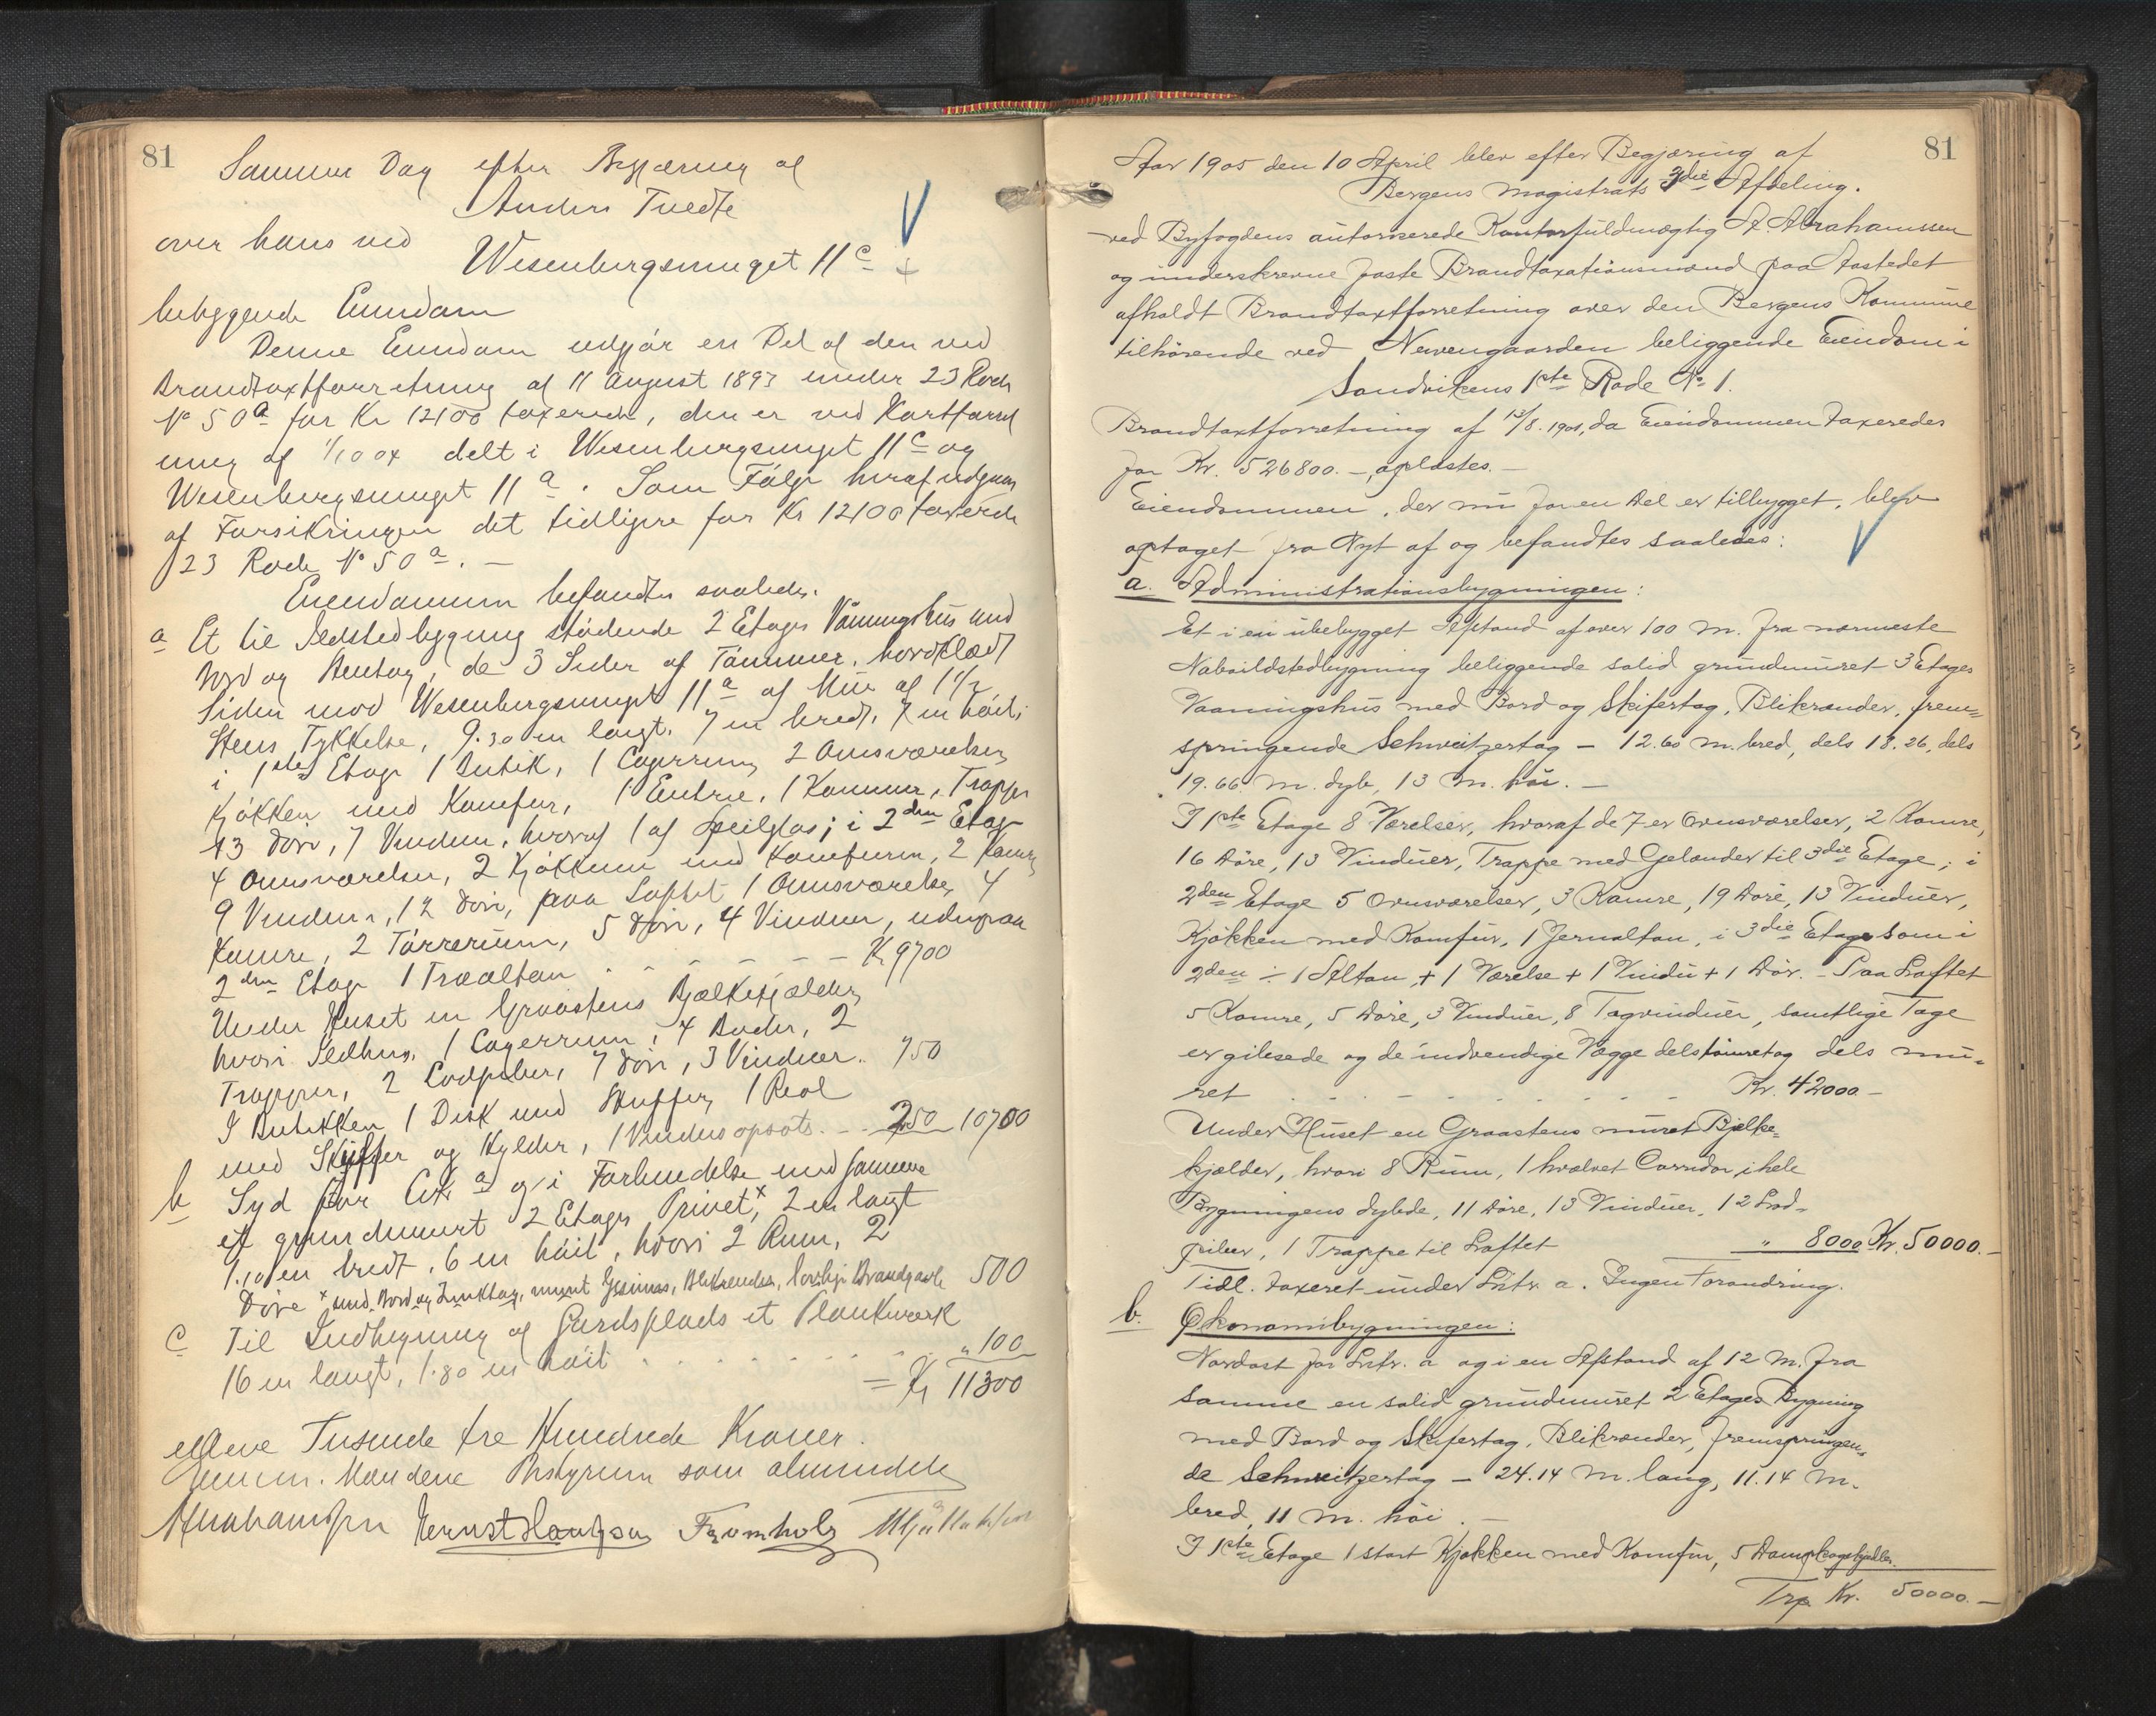 81
Samme Dag efter Begjæring af
Anders Tvedte
over hans ved
Wesenbergsmuget 11 c
beliggende Eiendom
Denne Eiendom udgjör en Del af den ved
Brandtaxtforretning af 11 August 1893 under 23 Rode
No 50 a for Kr 12100 taxerede, der er ved Kartforret
ning af 1/10 04 delt i Wesenbergsmuget 11 c og
Wesenbergsmuget 11 a. Som Fölge heraf udgaar
af Forsikringen det tidligere for Kr 12100 taxerede
23 Rode No 50 a. –
Eiendommen befandtes saaledes.
a Et til Ildstedbygning stödende 2 Etages Vaaningshus med
Bord og Stentag, de 3 Sider af Tömmer, bordklædt
Siden mod Wesenbergsmuget 11 a af Mur af 1 1/2
Stens Tykkelse, 9.30 m langt, 7 m bredt, 7 m höit;
i 1ste Etage 1 Butik, 1 Lagerrum, 2 Ovnsværelser,
Kjökken med Komfur, 1 Entrie, 1 Kammer, Trapper
13 Döre, 7 Vinduer, hvoraf 1 af Speilglas; i 2den Etage
4 Ovnsværelser, 2 Kjökkener med Komfurer, 2 Kamre
9 Vinduer, 12 Döre, paa Loftet 1 Ovnsværelse, 4
Kamre, 2 Törrerum, 5 Döre, 4 Vinduer, udenpaa
2den Etage 1 Træaltan . – – – – – Kr 9700
Under Huset en Graastens Bjælkekjælder,
hvori Ildhus, 1 Lagerrum, 4 Boder, 2
Trapper, 2 Lodpiber, 7 Döre, 3 Vinduer. 750
I Butikken 1 Disk med Skuffer, 1 Reol
med Skuffer og Hylder, 1 Vinduesopsats – – 250 10700
b Syd for Litr a og i Forbindelse med samme
et grundmuret 2 Etages Privet x, 2 m langt
1.10 m bredt, 6 m höit, hvori 2 Rum, 2
Döre x med Bord og Zinktag, muret Gesimse, Blikrender, lovlige Brandgavle 500
c Til Indhegning af Gaardsplads et Plankeværk
16 m langt, 1.80 m höit . . . . . . . . " 100
= Kr 11300
elleve Tusende tre Hundrede Kroner.
Mændene som almindelig
Abrahamsen Fromholz
81
Aar 1905 den 10 April blev efter Begjæring af
Bergens Magistrats 3die Afdeling.
ved Byfogdens autoriserede Kontorfuldmægtig A. Abrahamssen
og underskrevne faste Brandtaxationsmænd paa Aastedet
afholdt Brandtaxtforretning over den Bergens Kommune
tilhörende ved Nevengaarden beliggende Eiendom i
Sandvikens 1ste Rode No 1.
Brandtaxtforretning af 13/8. 1901, da Eiendommen taxeredes
for Kr. 526800. –, oplæstes. –
Eiendommen, der nu for en Del er tilbygget, blev
optaget fra Nyt af og befandtes saaledes:
a. Administrationsbygningen:
Et i en ubebygget Afstand af over 100 m. fra nærmeste
Naboildstedbygning beliggende solid grundmuret 3 Etages
Vaaningshus med Bord og Skifertag, Blikrænder, frem=
springende Schweitzertag – 12.60 m. bred, dels 18.26, dels
19.66 m. dyb, 13 m. höi. –
I 1ste Etage 8 Værelser, hvoraf de 7 er Ovnsværelser, 2 Kamre,
16 Döre, 13 Vinduer, Trappe med Gelænder til 3die Etage; i
2den Etage 5 Ovnsværelser, 3 Kamre, 19 Döre, 13 Vinduer,
Kjökken med Komfur, 1 Jernaltan, i 3die Etage som i
2den ÷ 1 Altan, + 1 Værelse + 1 Vindu + 1 Dör. – Paa Loftet
5 Kamre, 5 Döre, 3 Vinduer, 8 Tagvinduer, samtlige Tage
er gibsede og de indvendige Vægge dels tömret og dels mu=
ret . . – . – – – – – – Kr. 42000. –
Under Huset en Graastens muret Bjelke=
kjælder, hvori 8 Rum, 1 hvælvet Corridor i hele
Bygningens dybde, 11 Döre, 13 Vinduer, 12 Lod=
piber, 1 Trappe til Loftet " 8000 Kr. 50000. –
Tidl. taxeret under Litr. a. Ingen Forandring.
b. Økonomibygningen:
Nordost for Litr. a og i en Afstand af 12 m. fra
samme en solid grundmuret 2 Etages Bygning
med Bord og Skifertag, Blikrænder, fremspringen=
de Schweitzertag – 24.14 m. lang, 11.14 m.
bred, 11 m. höi. –
I 1ste Etage 1 stort Kjökken med Komfur, 5 Dampkogekjedler
Trp. Kr. 50000. –